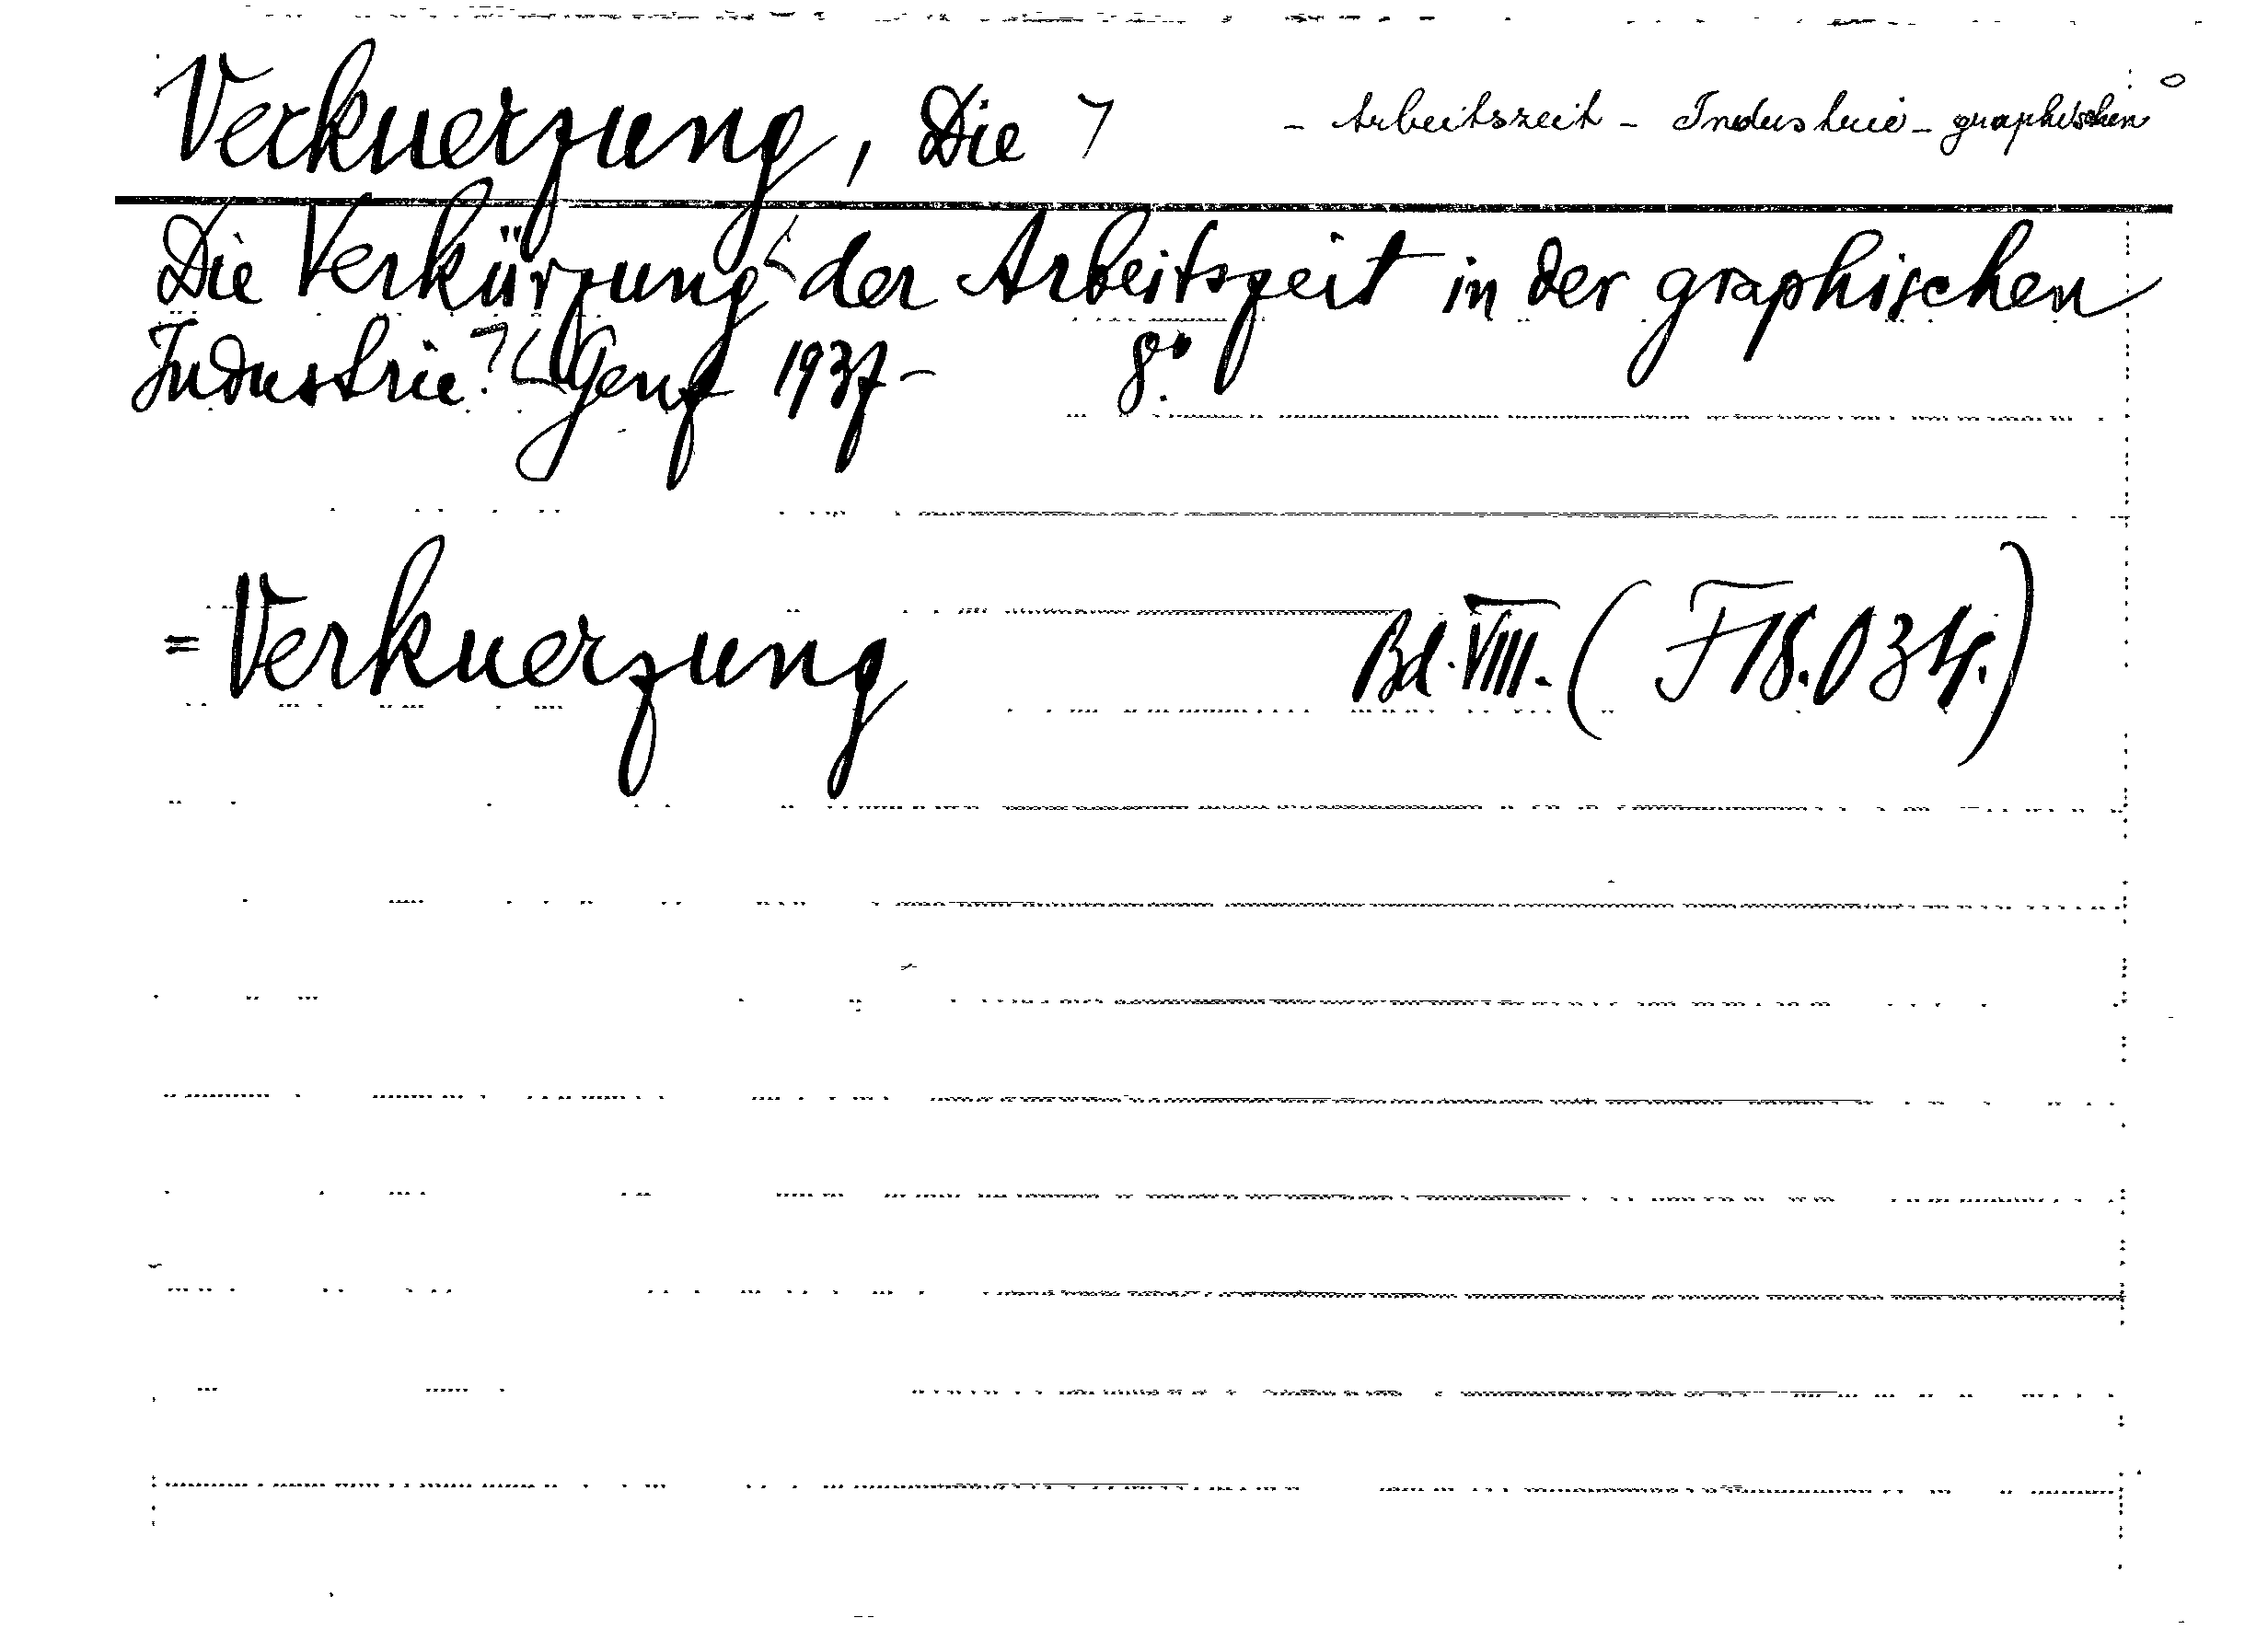 Verkuerzung, Die ⁊ - Arbeitszeit - Industrie - graphischen
Die Verkürzung der Arbeitszeit in der graphischen
Industrie. Genf 1937- 8°.
= Verkuerzung Bd. VIII. (F18.034.)